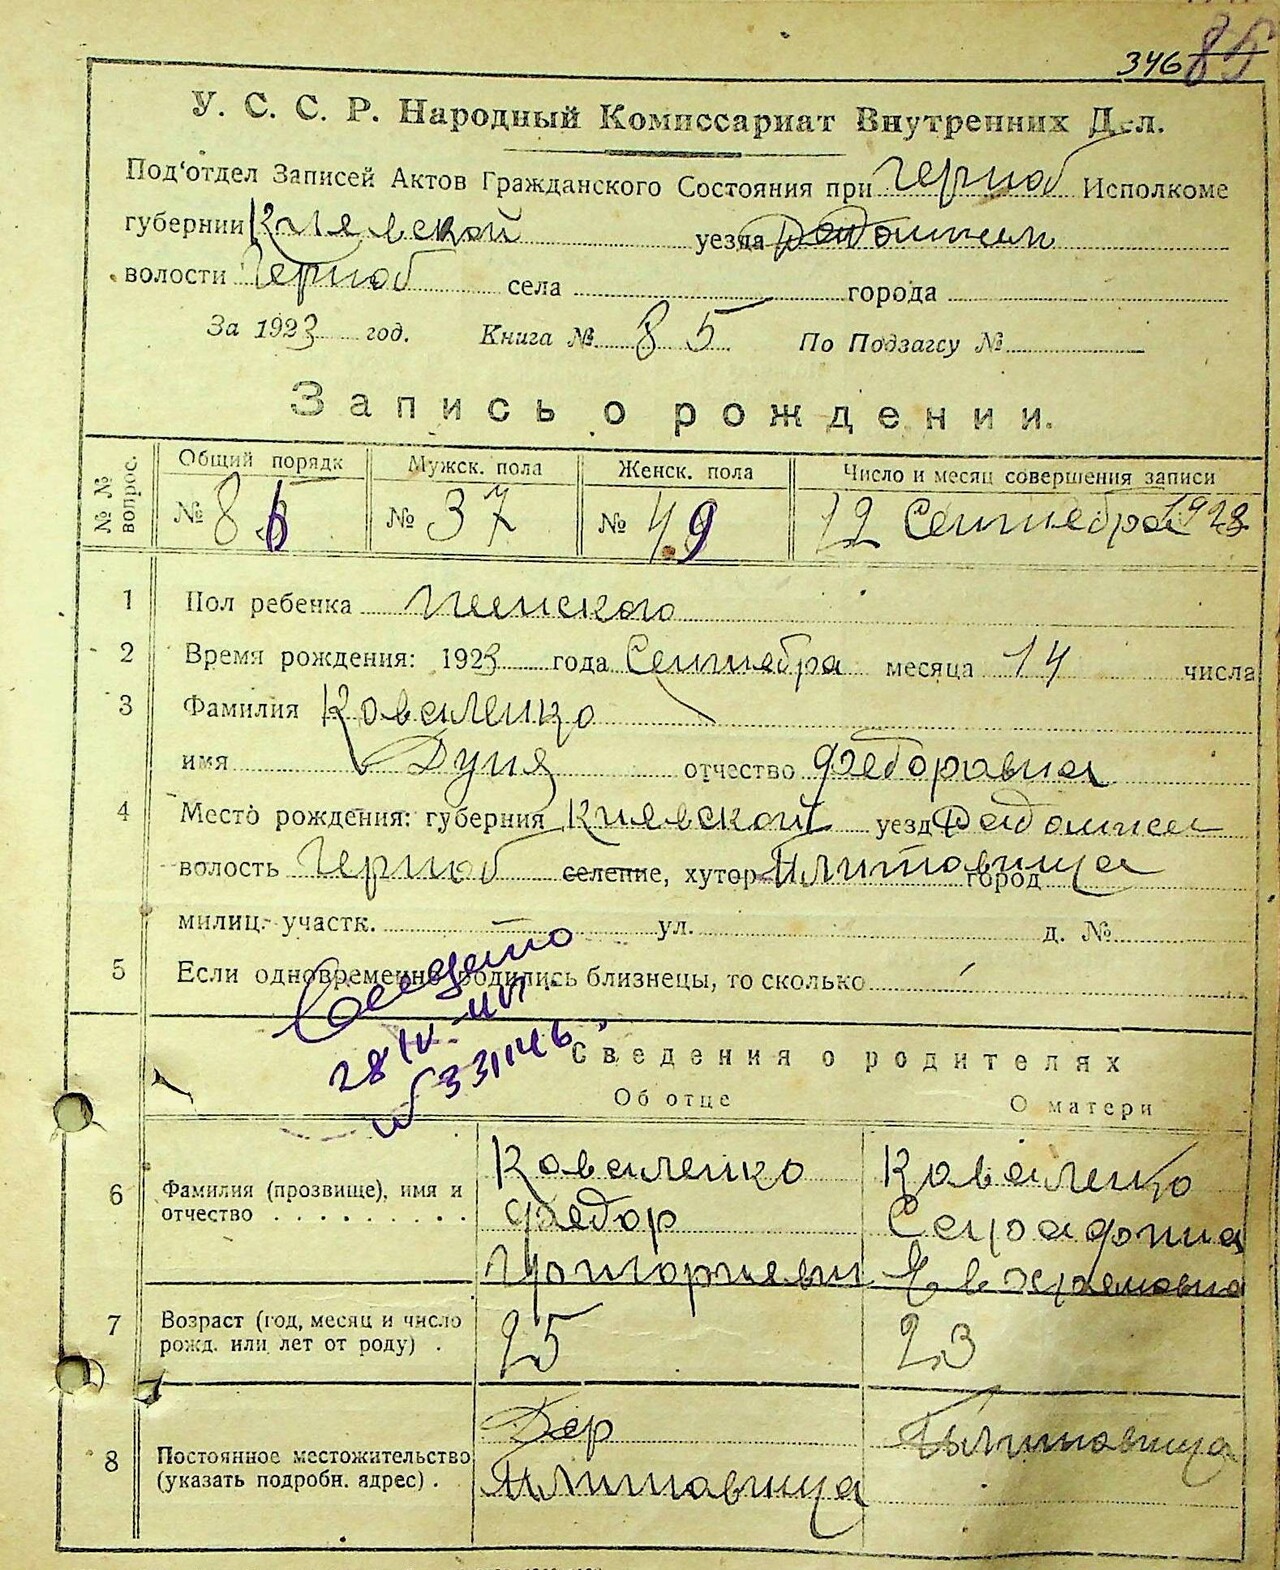 346 85
У. С. С. Р. Народный Комиссариат Внутренних Дел.
Под'отдел Записей Актов Гражданского Состояния при Черноб Исполкоме
губернии Киевской уезда Радомысл
волости Черноб села города
За 1923 год. Книга № 85 По Подзагсу №
Запись о рождении.
№ № вопрос. Общий порядк Мужск. пола Женск. пола Число и месяц совершения записи
№ 86 № 37 № 49 22 Сентября 1923
1 Пол ребенка Женского
2 Время рождения: 1923 года Сентября месяца 14 числа
3 Фамилия Коваленко
имя Дуня отчество Федоравна
4 Место рождения: губерния Киевской уезд Радомысл
волость Черноб селение, хутор Плитовища город
милиц. участк. ул. д. №
5 Если одновременно родились близнецы, то сколько
28 IV
331146
Сведения о родителях
Об отце О матери
6 Фамилия (прозвище), имя и отчество
Коваленко Федор Григориевич
Коваленко Серафима
7 Возраст (год, месяц и число рожд. или лет от роду) . 25 23
8 Постоянное местожительство (указать подробн. адрес) .
Дер Плитовища
Плитовища